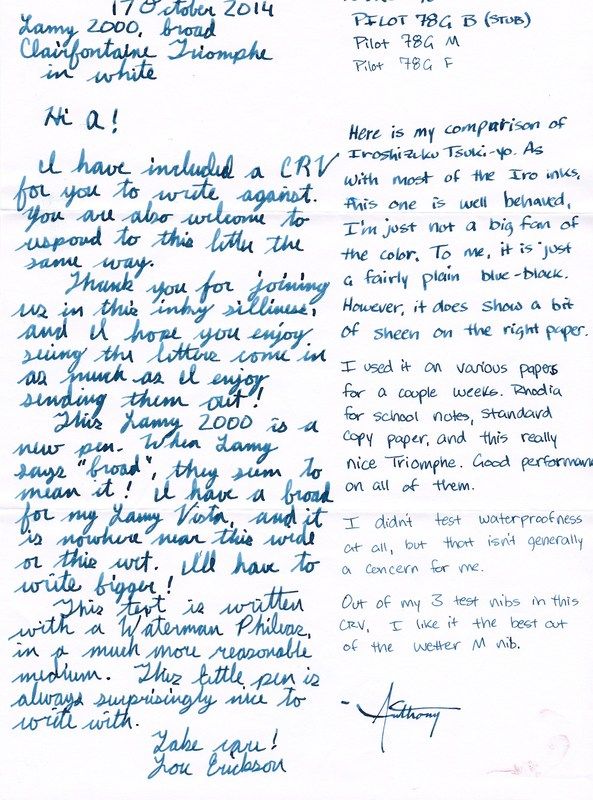 17 October 2014
Lamy 2000, broad
Clairfontaine Triomphe
in white
Hi A!
I have included a CRV
for you to write against.
You are also welcome to
respond to this letter the
same way.
Thank you for joining
us in this inky silliness,
and I hope you enjoy
seeing the letters come in
as much as I enjoy
sending them out!
This Lamy 2000 is a
new pen. When Lamy
says "broad", they seem to
mean it! I have a broad
for my Lamy Vista, and it
is nowhere near this wide
or this wet. I'll have to
write bigger!
This text is written
with a Waterman Phileas,
in a much more reasonable
medium. This little pen is
always surprisingly nice to
write with.
Take care!
Lou Erickson
PILOT 78G B (STUB)
Pilot 78G M
Pilot 78G F
Here is my comparison of
Iroshizuku Tsuki-yo. As
with most of the Iro inks,
this one is well behaved,
I'm just not a big fan of
the color. To me, it is just
a fairly plain blue-black.
However, it does show a bit
of sheen on the right paper.
I used it on various papers
for a couple weeks. Rhodia
for school notes, standard
copy paper, and this really
nice Triomphe. Good performan
on all of them.
I didn't test waterproofness
at all, but that isn't generally
a concern for me.
Out of my 3 test nibs in this
CRV, I like it the best out
of the wetter M nib.
- Anthony